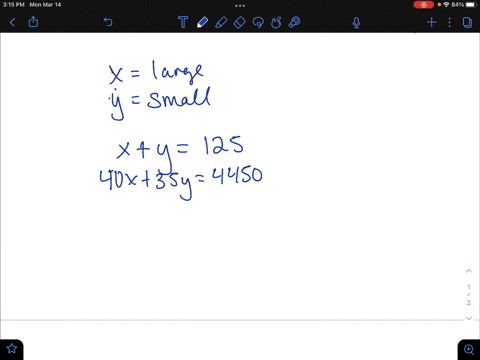 3:15 PM Mon Mar 14
84%
x = large
y = small
x + y = 125
40x + 35y = 4450
1
/
2